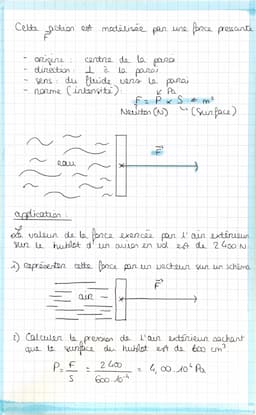 Cette action est modélisée par une force pressante
F
- origine : centre de la paroi
- direction : ⊥ à la paroi
- sens : du fluide vers la paroi
- norme (intensité) :
Pa
F = P x S m²
Newton (N) (surface)
eau
F
application :
valeur de la force exercée par l'air extérieur
sur le hublot d'un avion en vol est de 2400 N
1) représenter cette force par un vecteur sur un schéma
air
F
2) Calculer la pression de l'air extérieur sachant
que la surface du hublot est de 600 cm²
P = F/S = 2400/600.10⁻⁴ = 4,00.10⁴ Pa